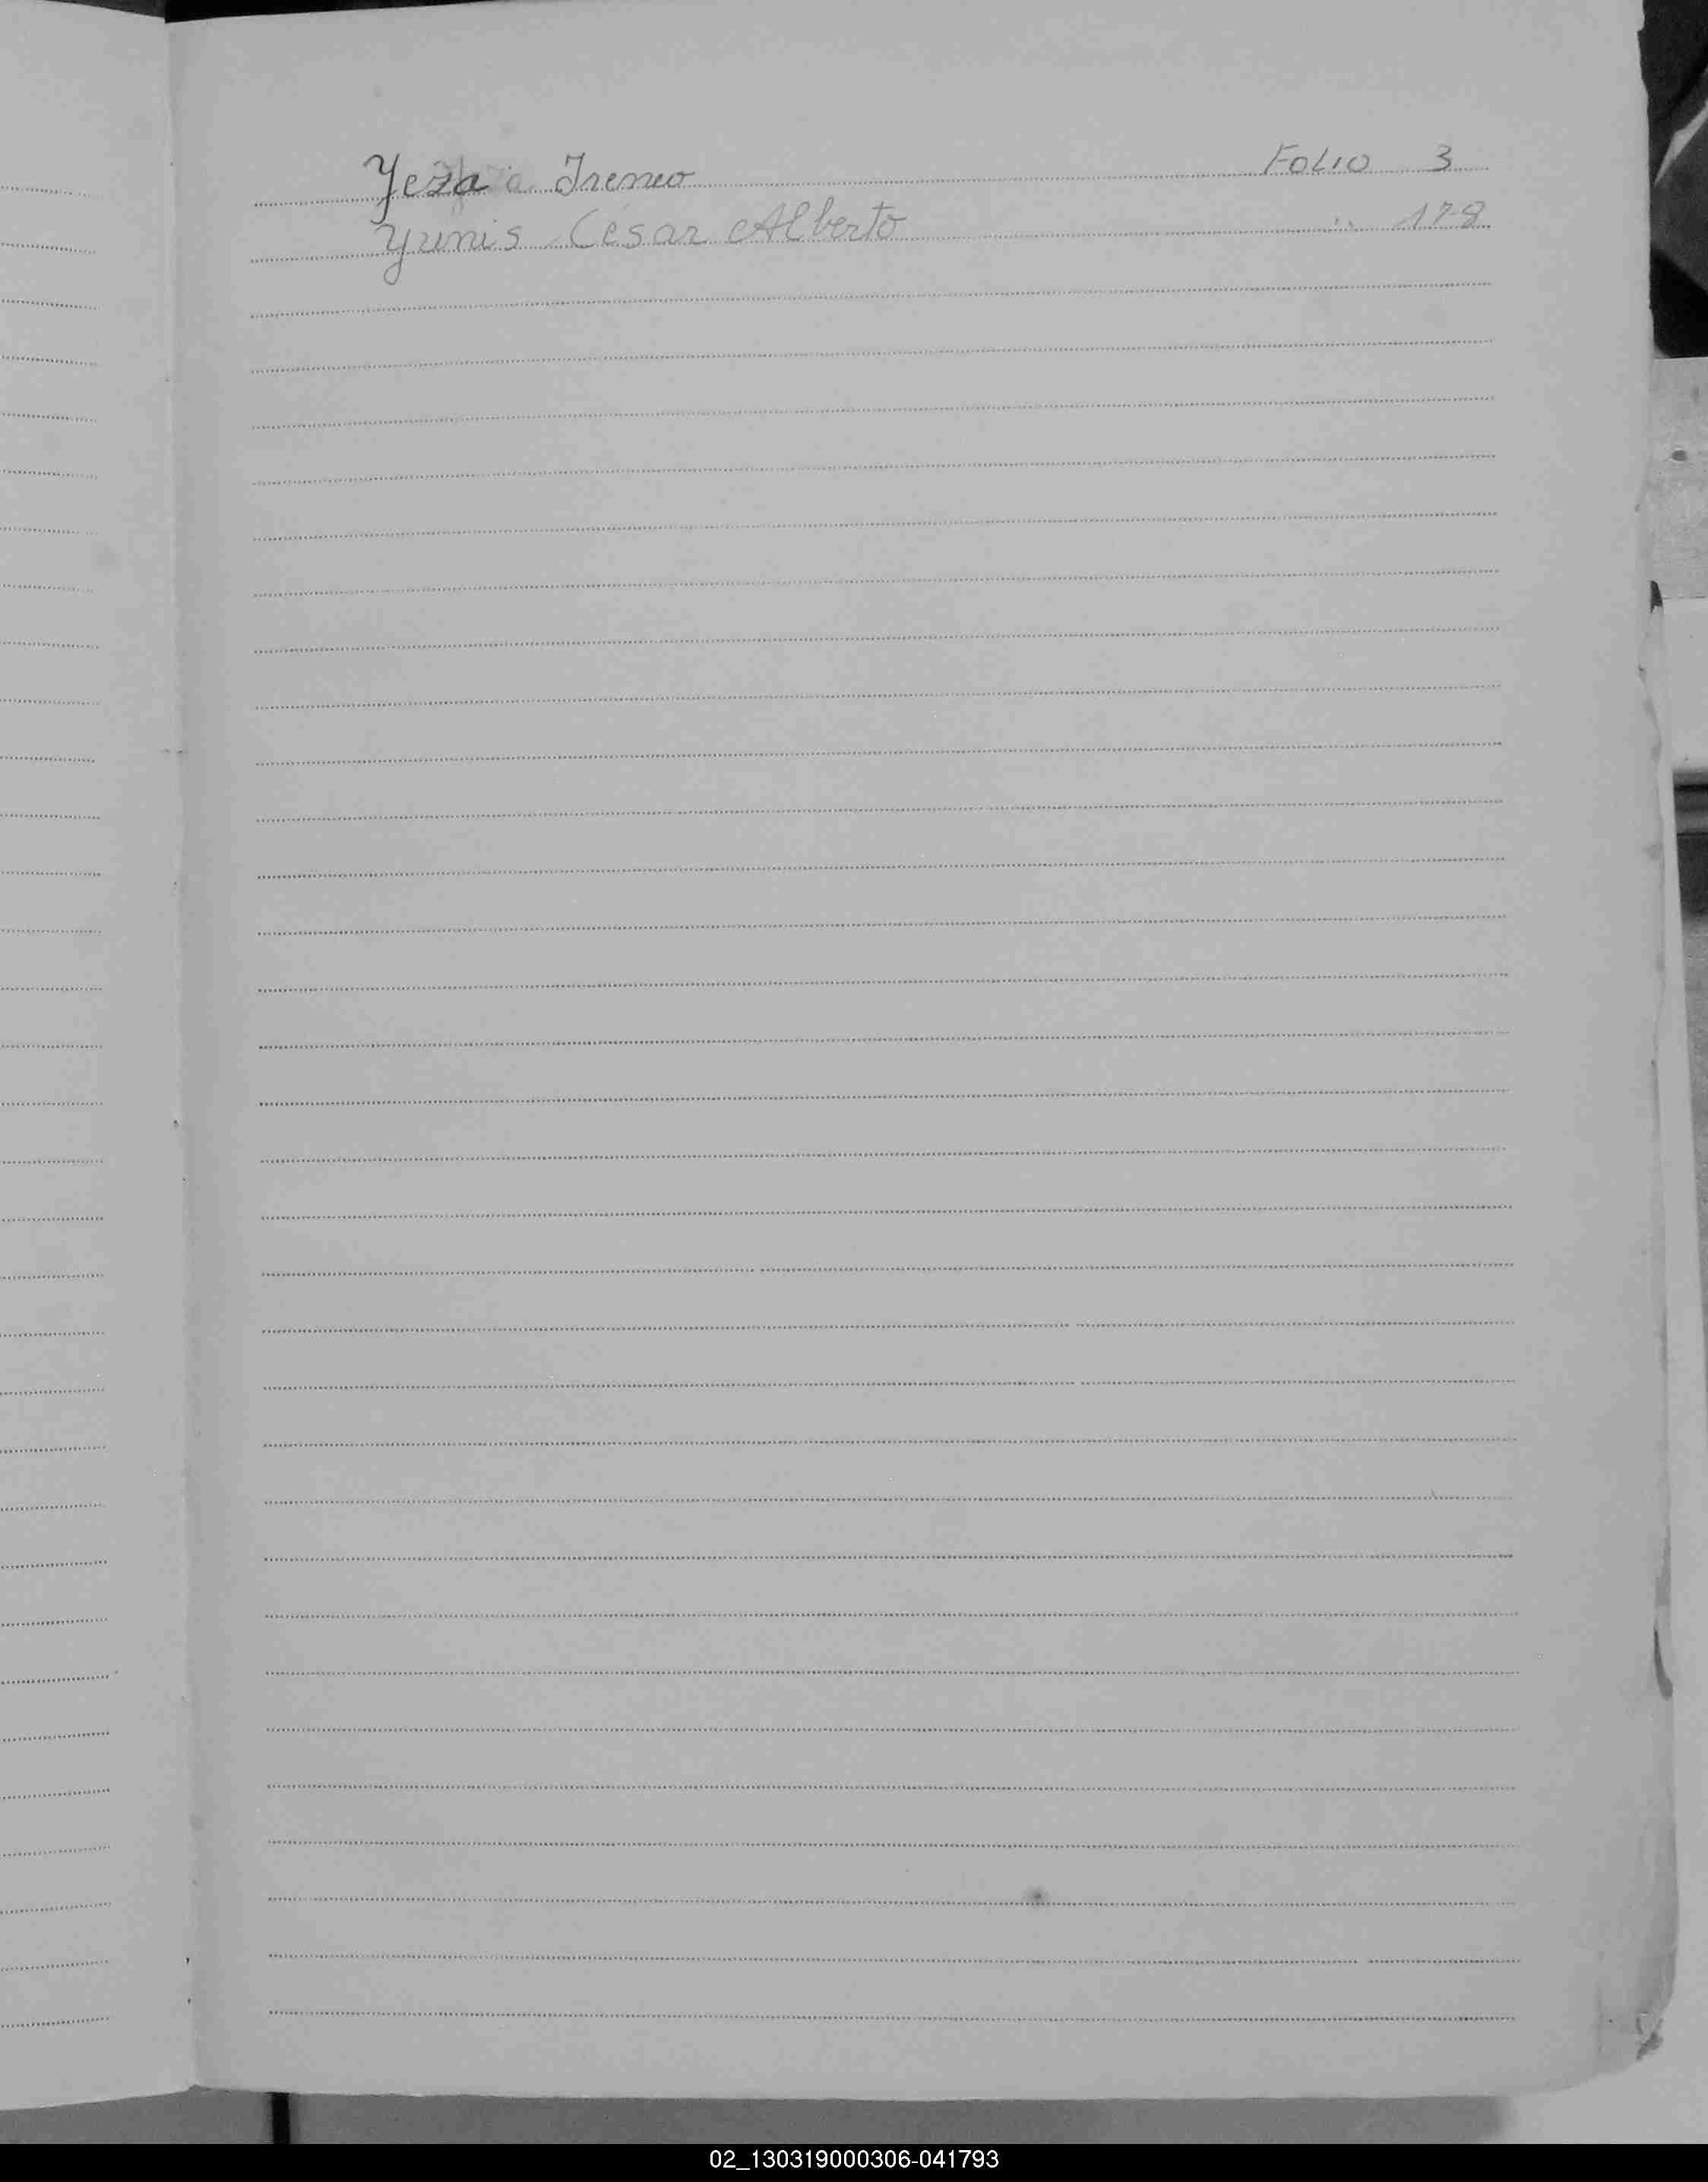 Yeza Ireneo Folio 3
Yunis César Alberto " 178
02_130319000306-041793